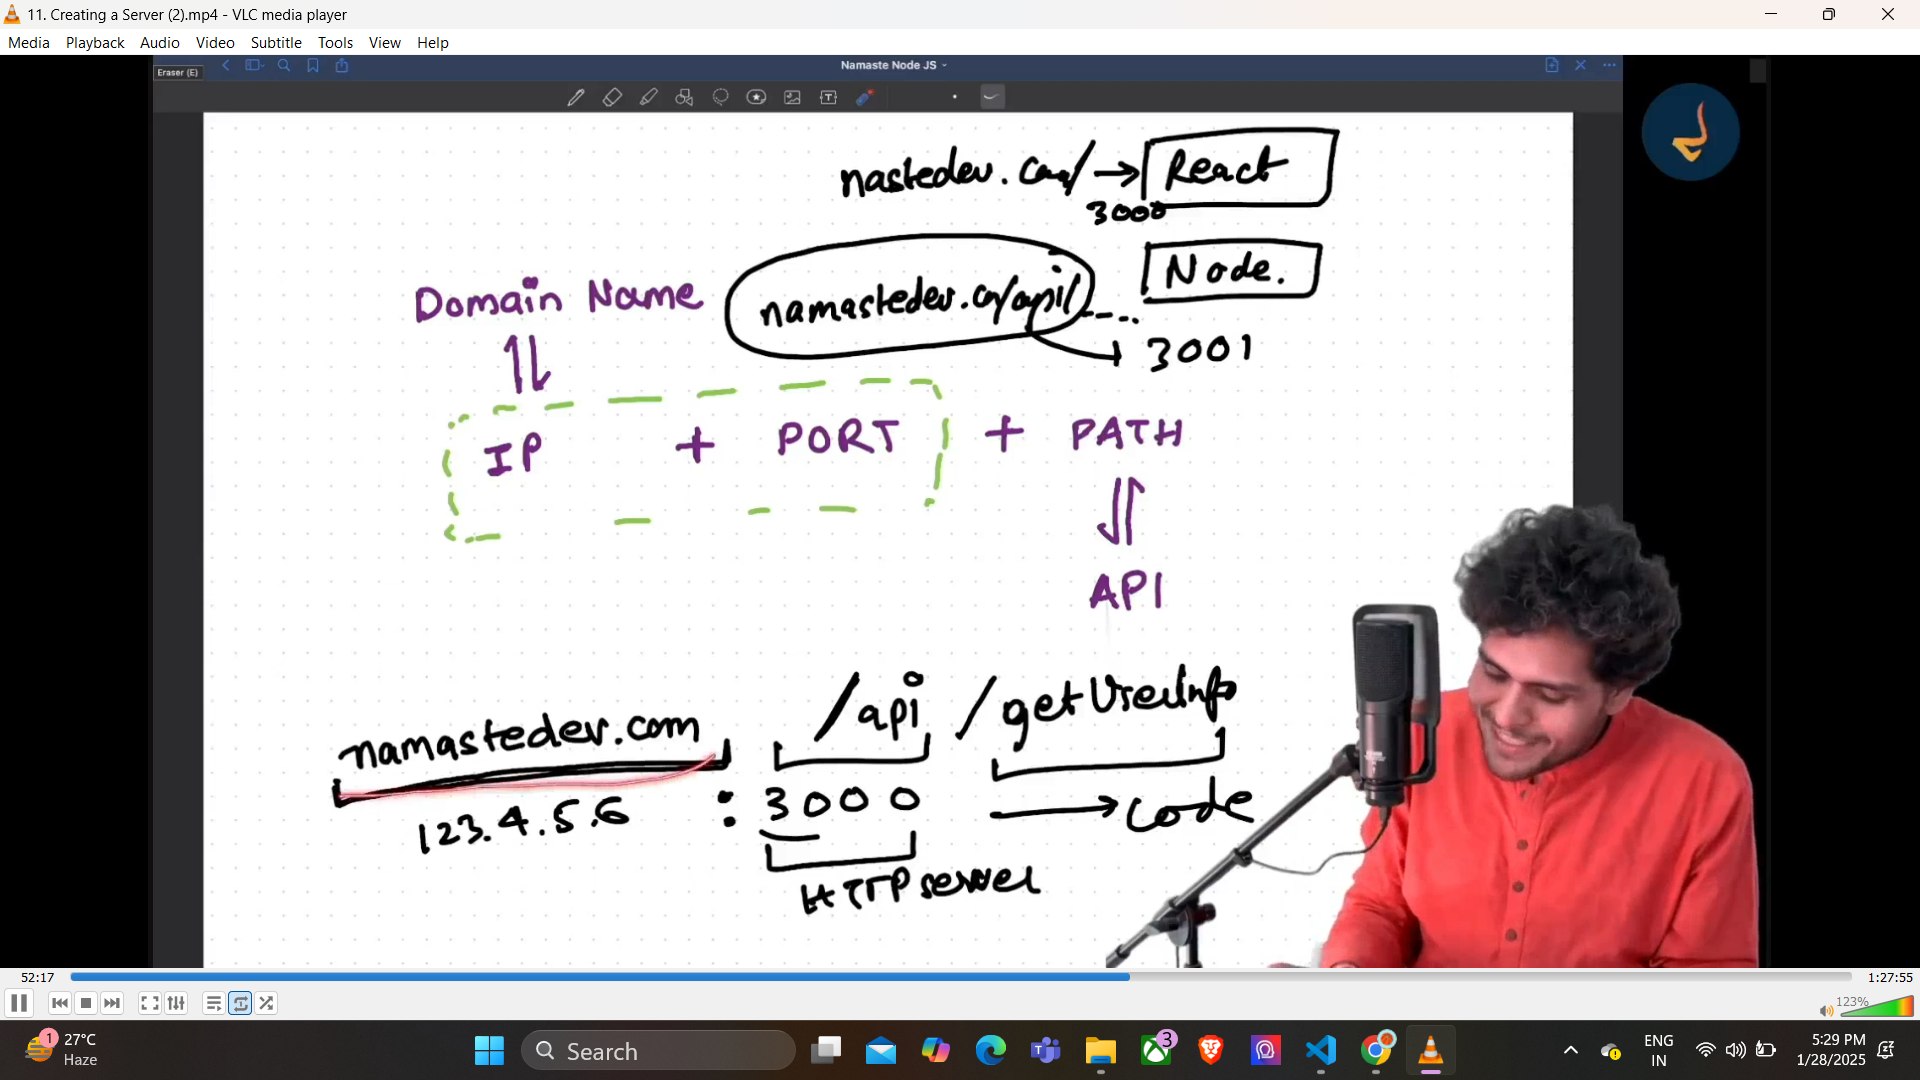 11. Creating a Server (2).mp4 - VLC media player
Media Playback Audio Video Subtitle Tools View Help
Eraser (E)
Namaste Node JS
nastedev.com/ → React
3000
Domain Name
namastedev.com/api/ Node.
3001
IP + PORT + PATH
API
namastedev.com /api /getUserInfo
123.4.5.6 : 3000 → code
HTTP server
52:17
1:27:55
123%
1
27°C
Haze
Search
3
ENG
IN
5:29 PM
1/28/2025